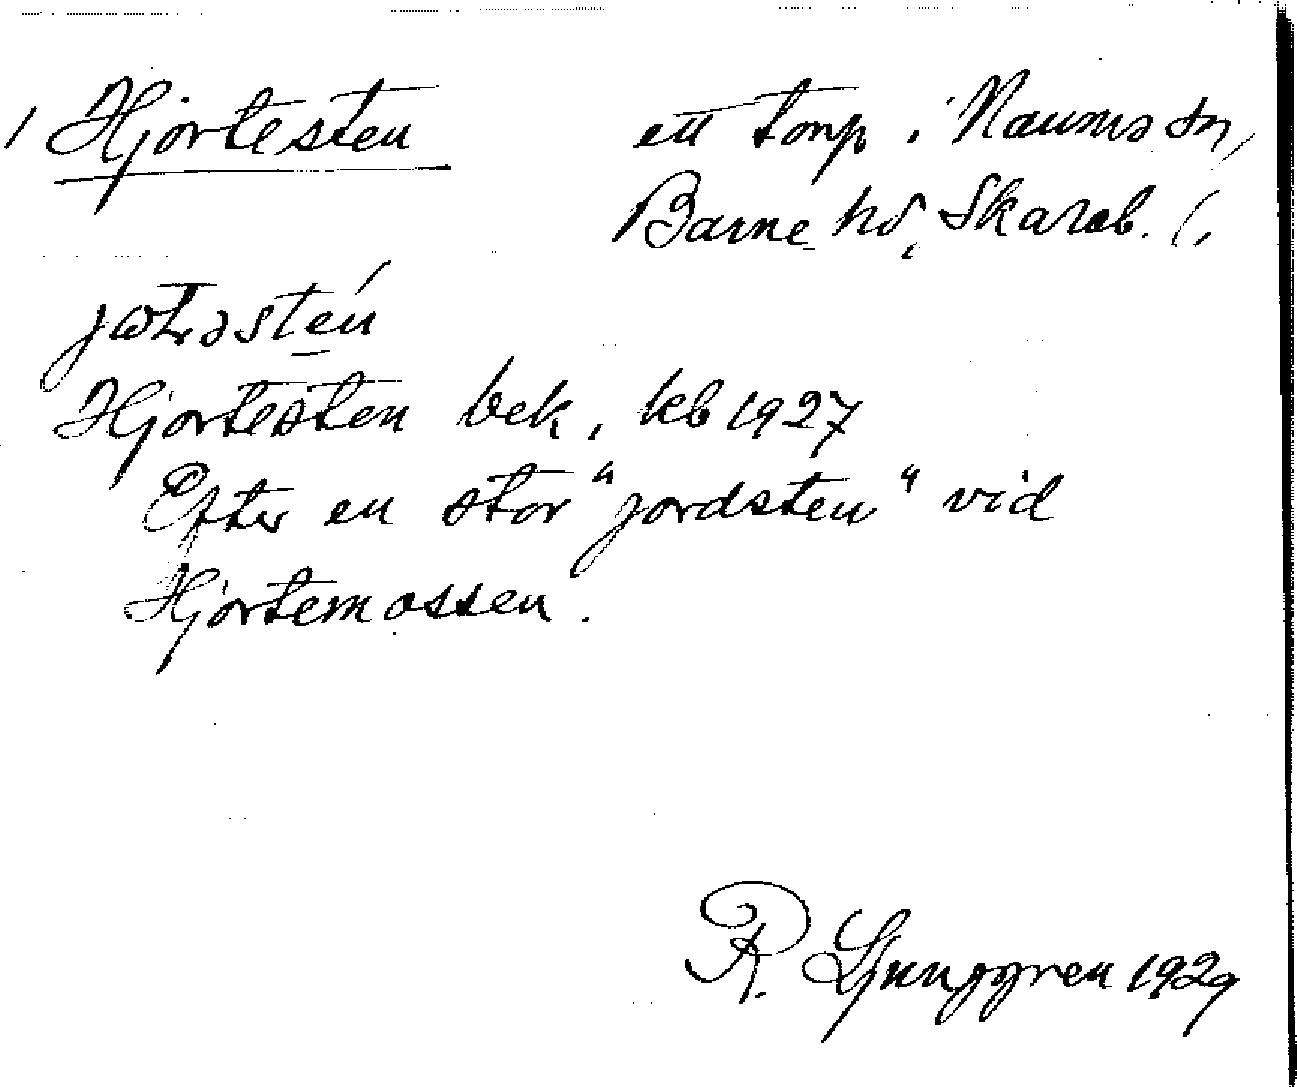 Hjortesten
ett torp i Naums sn,
Barne hd, Skarab. l.
Hjortesten bek. kb 1927
Efter en stor "jordsten" vid
Hjortemossen.
R. Ljunggren 1929